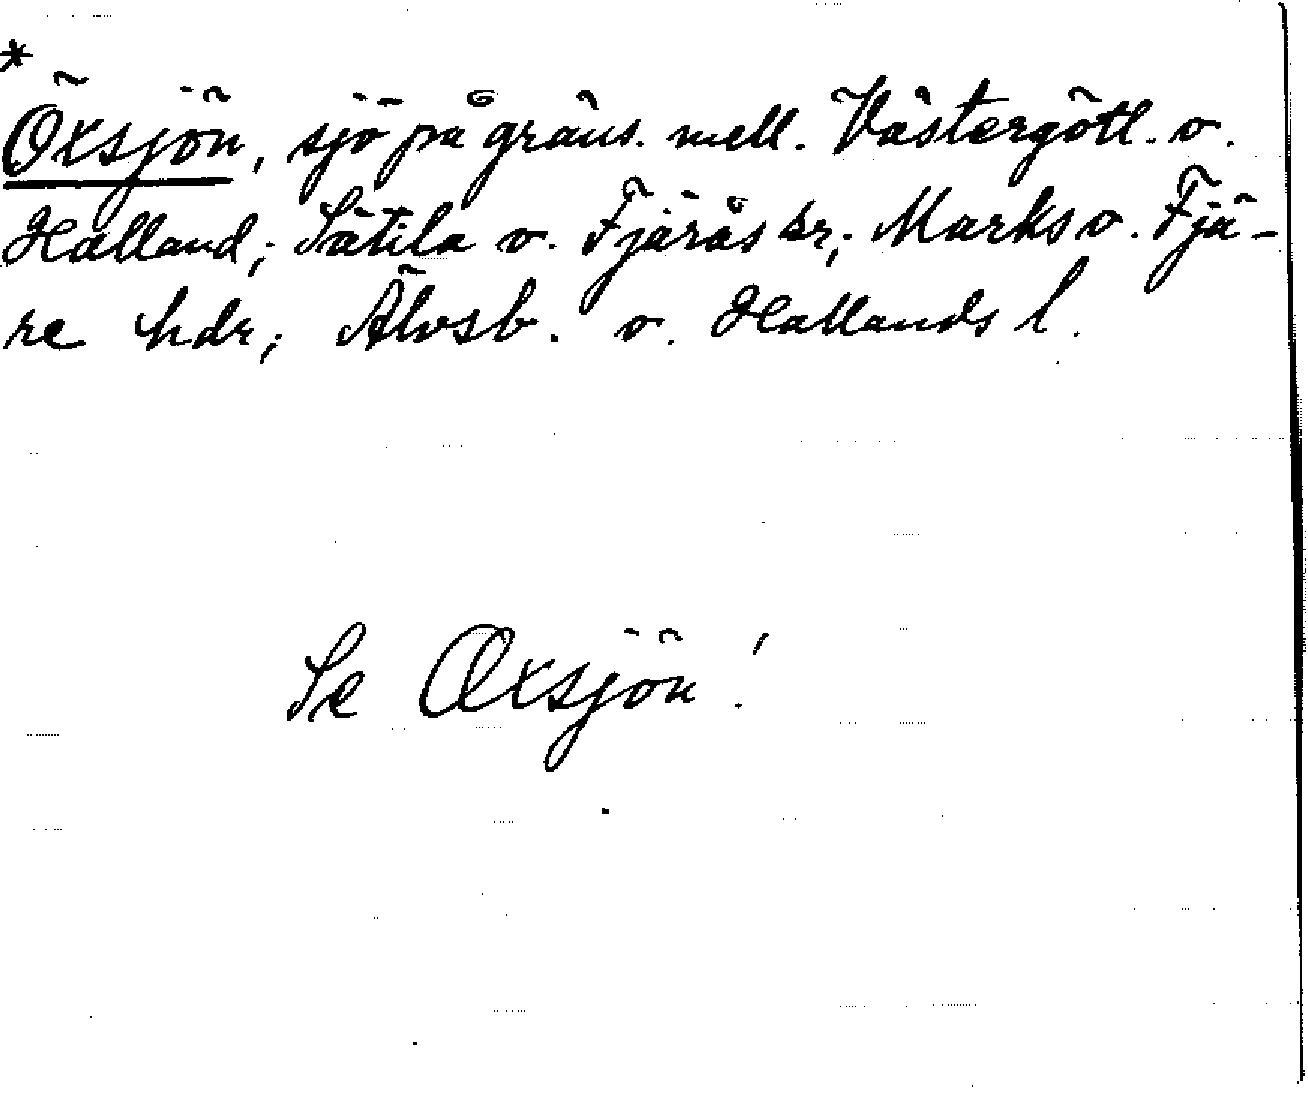 *
Öxsjön, sjö på gräns. mell. Västergötl. o.
Halland; Sätila o. Fjärås kr; Marks o. Fjä-
re hdr; Älvsb. o. Hallands l.
Se Oxsjön!